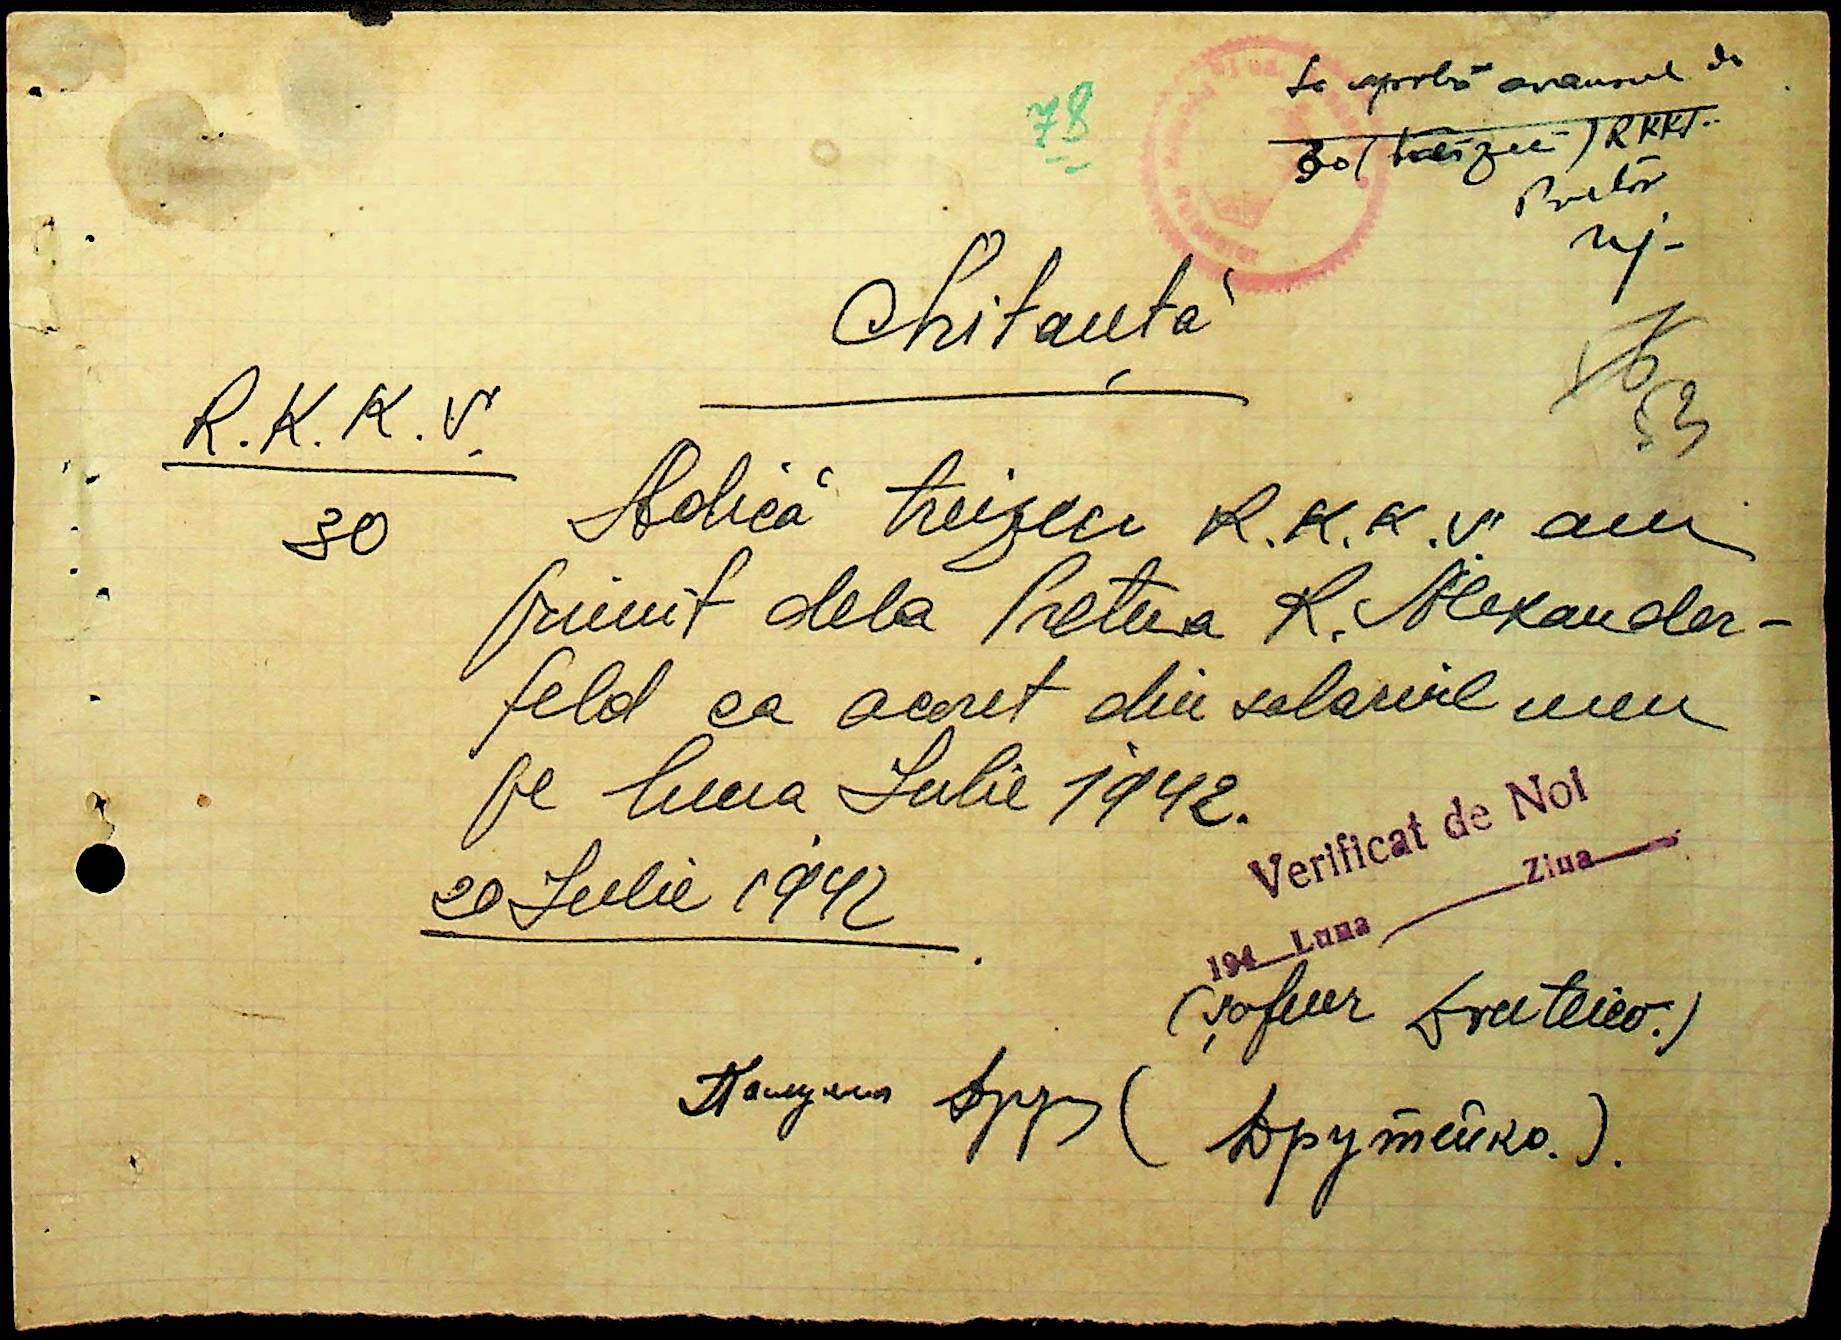 78
Se aprobă avansul de
30 (treizeci) RKKV.
Pretor
Chitanță
R.K.K.V.
30
Adică treizeci R.K.K.V. am
primit dela Pretura R. Alexander-
feld ca acont din salariul meu
pe luna Iulie 1942.
20 Iulie 1942
Verificat de Noi
194 Luna Ziua
(șofeur Druteico.)
Получил Др (Друтейко.).